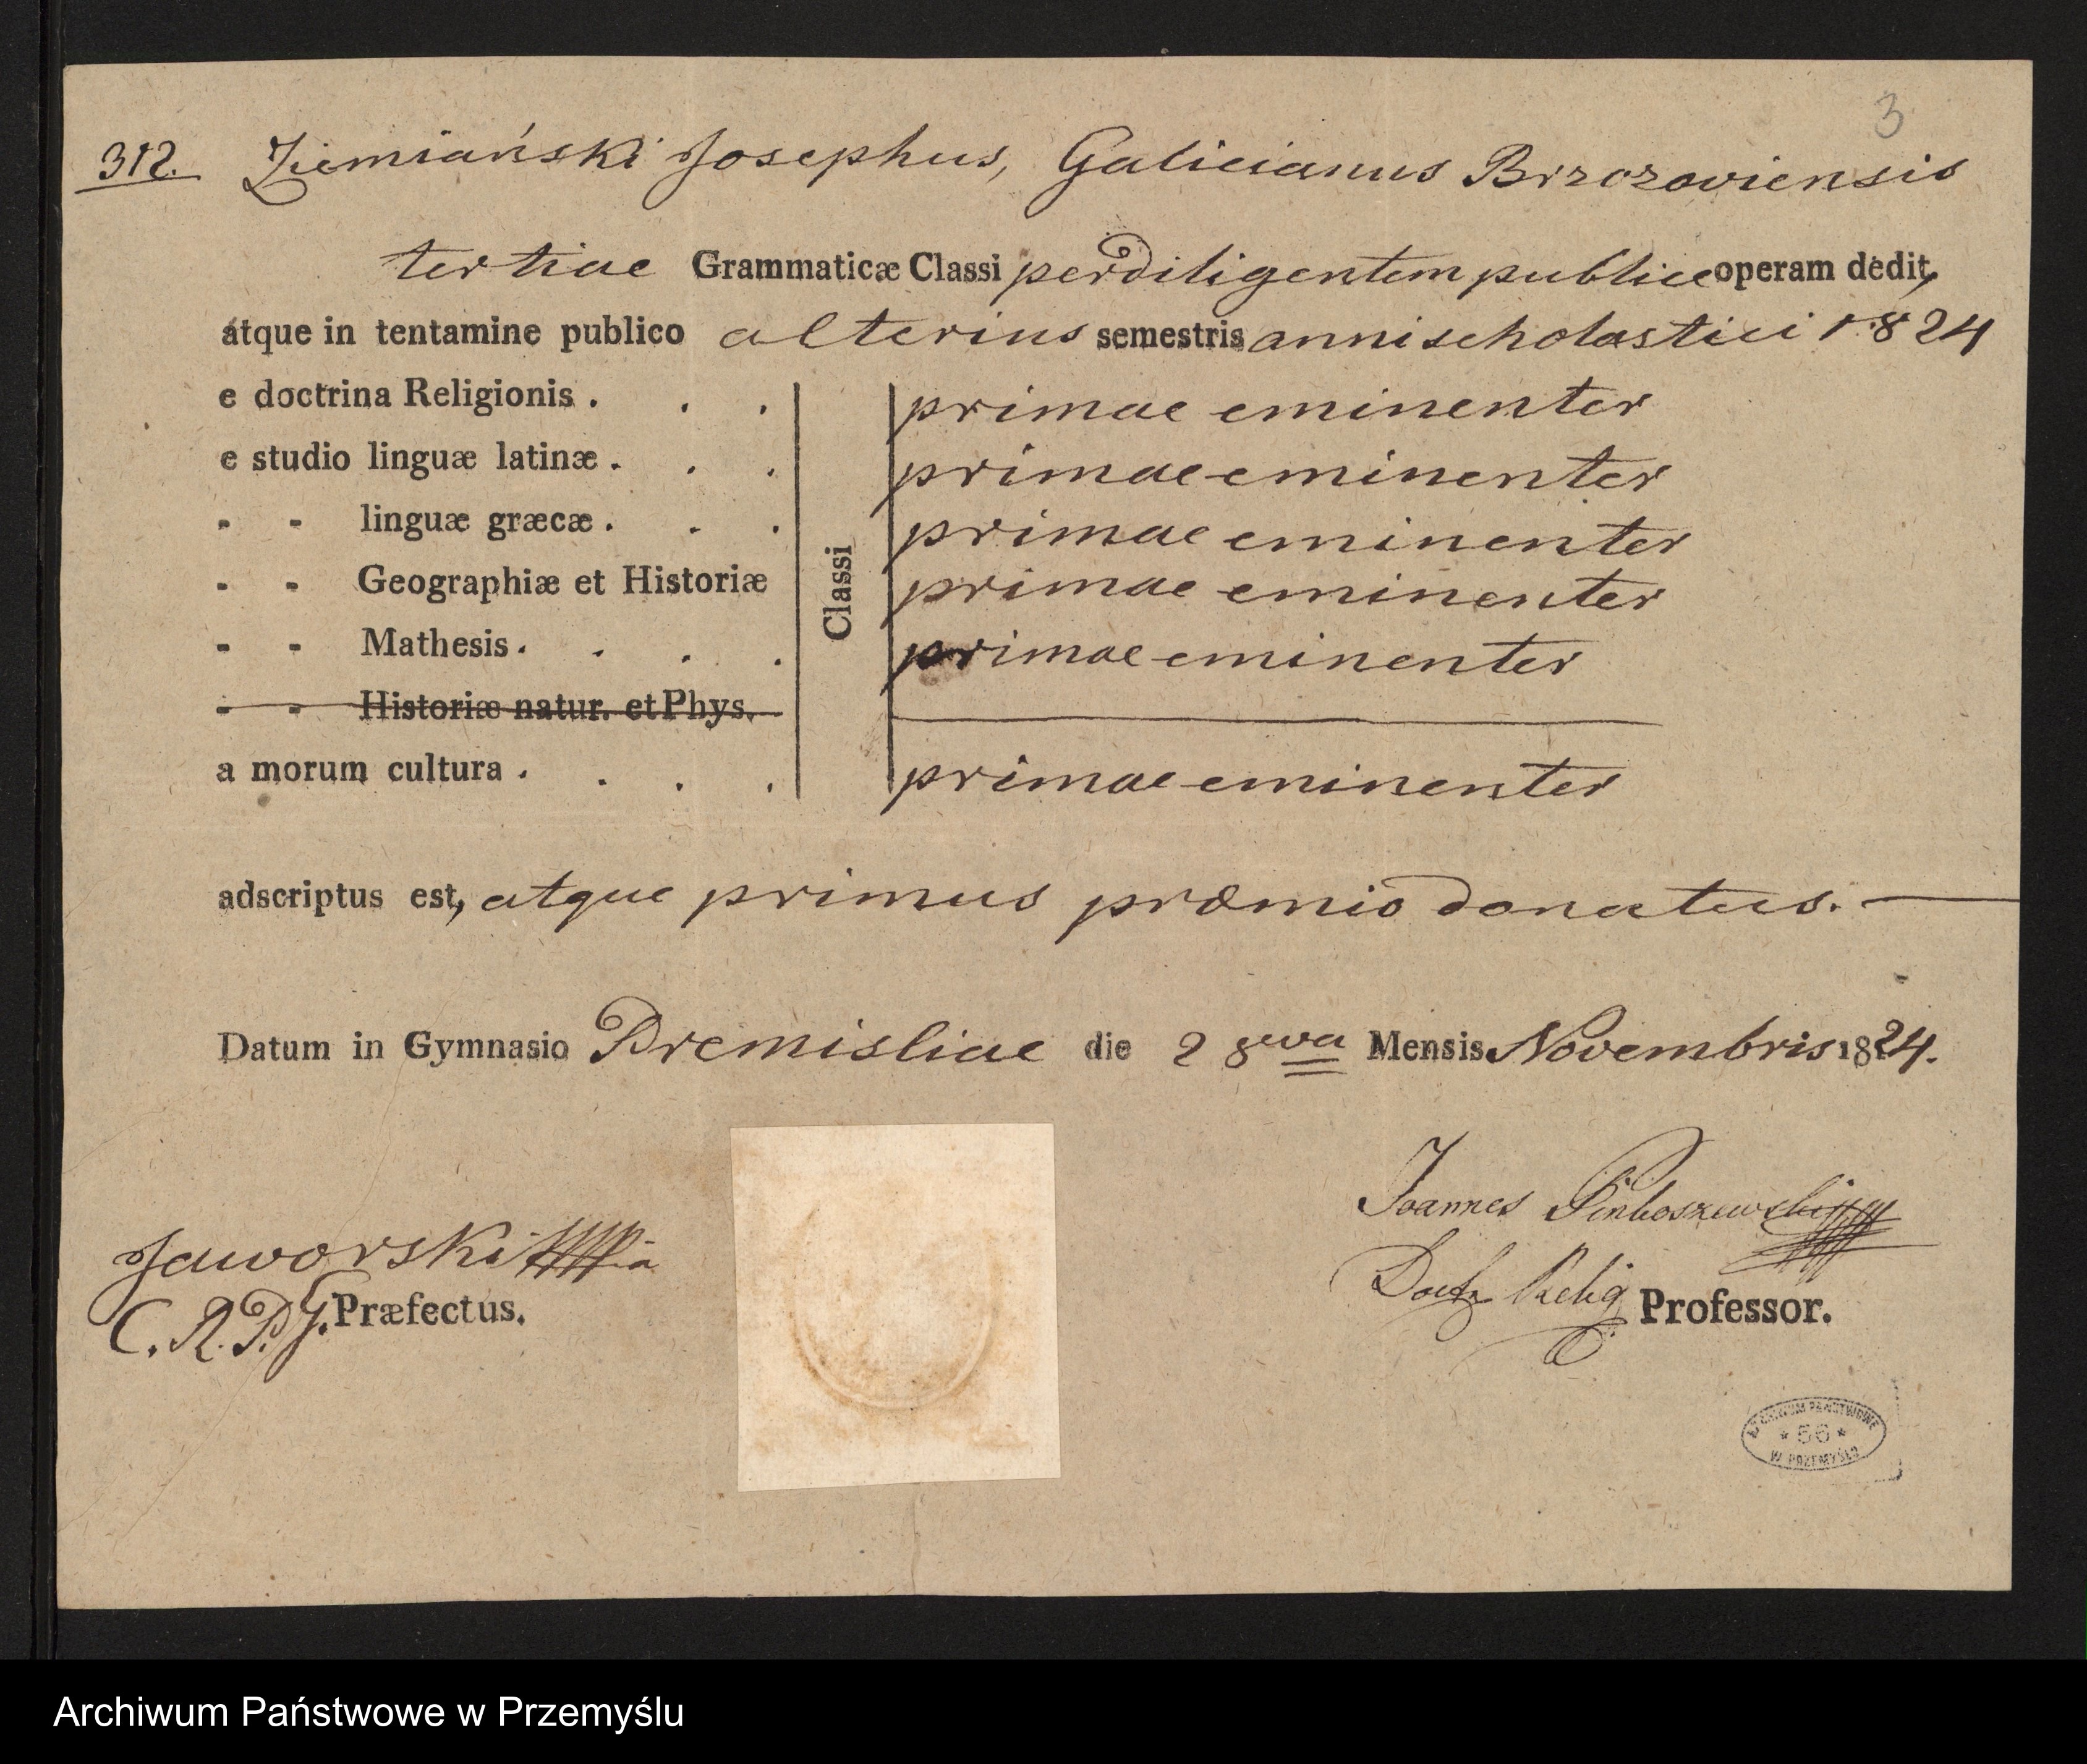 3
312. Ziemiański Josephus, Galicianus Brzozoviensis
tertiae Grammaticæ Classi perdiligentem publice operam dedit,
atque in tentamine publico alterius semestris anni scholastici 1824
e doctrina Religionis . . . primae eminenter
e studio linguæ latinæ . . . primae eminenter
- - linguæ græcæ . . . primae eminenter
- - Geographiæ et Historiæ primae eminenter
Classi
- - Mathesis . . . . primae eminenter
- - Historiæ natur. et Phys.
a morum cultura . . . . primae eminenter
adscriptus est, atque primus præmio donatus.
Datum in Gymnasio Premisliae die 28va Mensis Novembris 1824.
Joannes
Jaworski
Doctr Relig Professor.
C. R. P. G. Præfectus.
ARCHIWUM PAŃSTWOWE
* 56 *
W PRZEMYŚLU
Archiwum Państwowe w Przemyślu